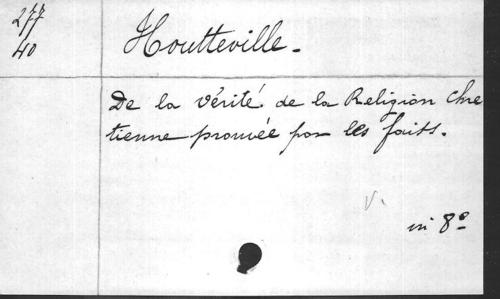 277
40
Houtteville.
De la vérité de la Religion chré
tienne prouvée par les faits.
V.
in 8º